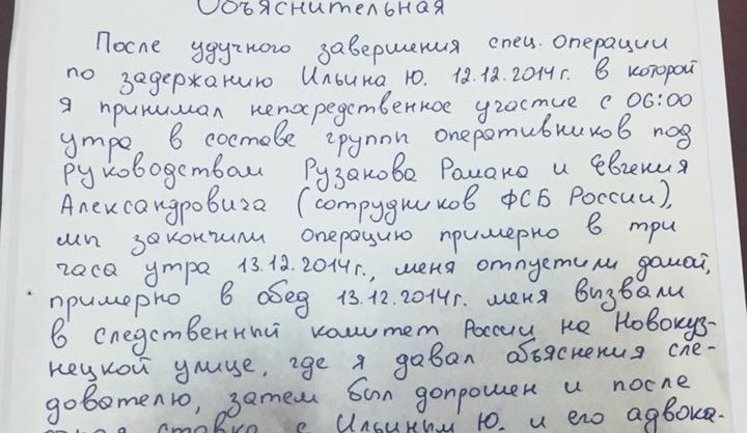 Объяснительная
После удучного завершения спец. операции
по задержанию Ильина Ю. 12.12.2014г. в которой
я принимал непосредственное участие с 06:00
утра в составе группы оперативников под
руководством Рузанова Романа и Евгения
Александровича (сотрудников ФСБ России),
мы закончили операцию примерно в три
часа утра 13.12.2014г., меня отпустили домой,
примерно в обед 13.12.2014г. меня вызвали
в следственный комитет России на Новокуз-
нецкой улице, где я давал объяснения сле-
дователю, затем был допрошен и после
ставка с Ильиным Ю. и его адвока-